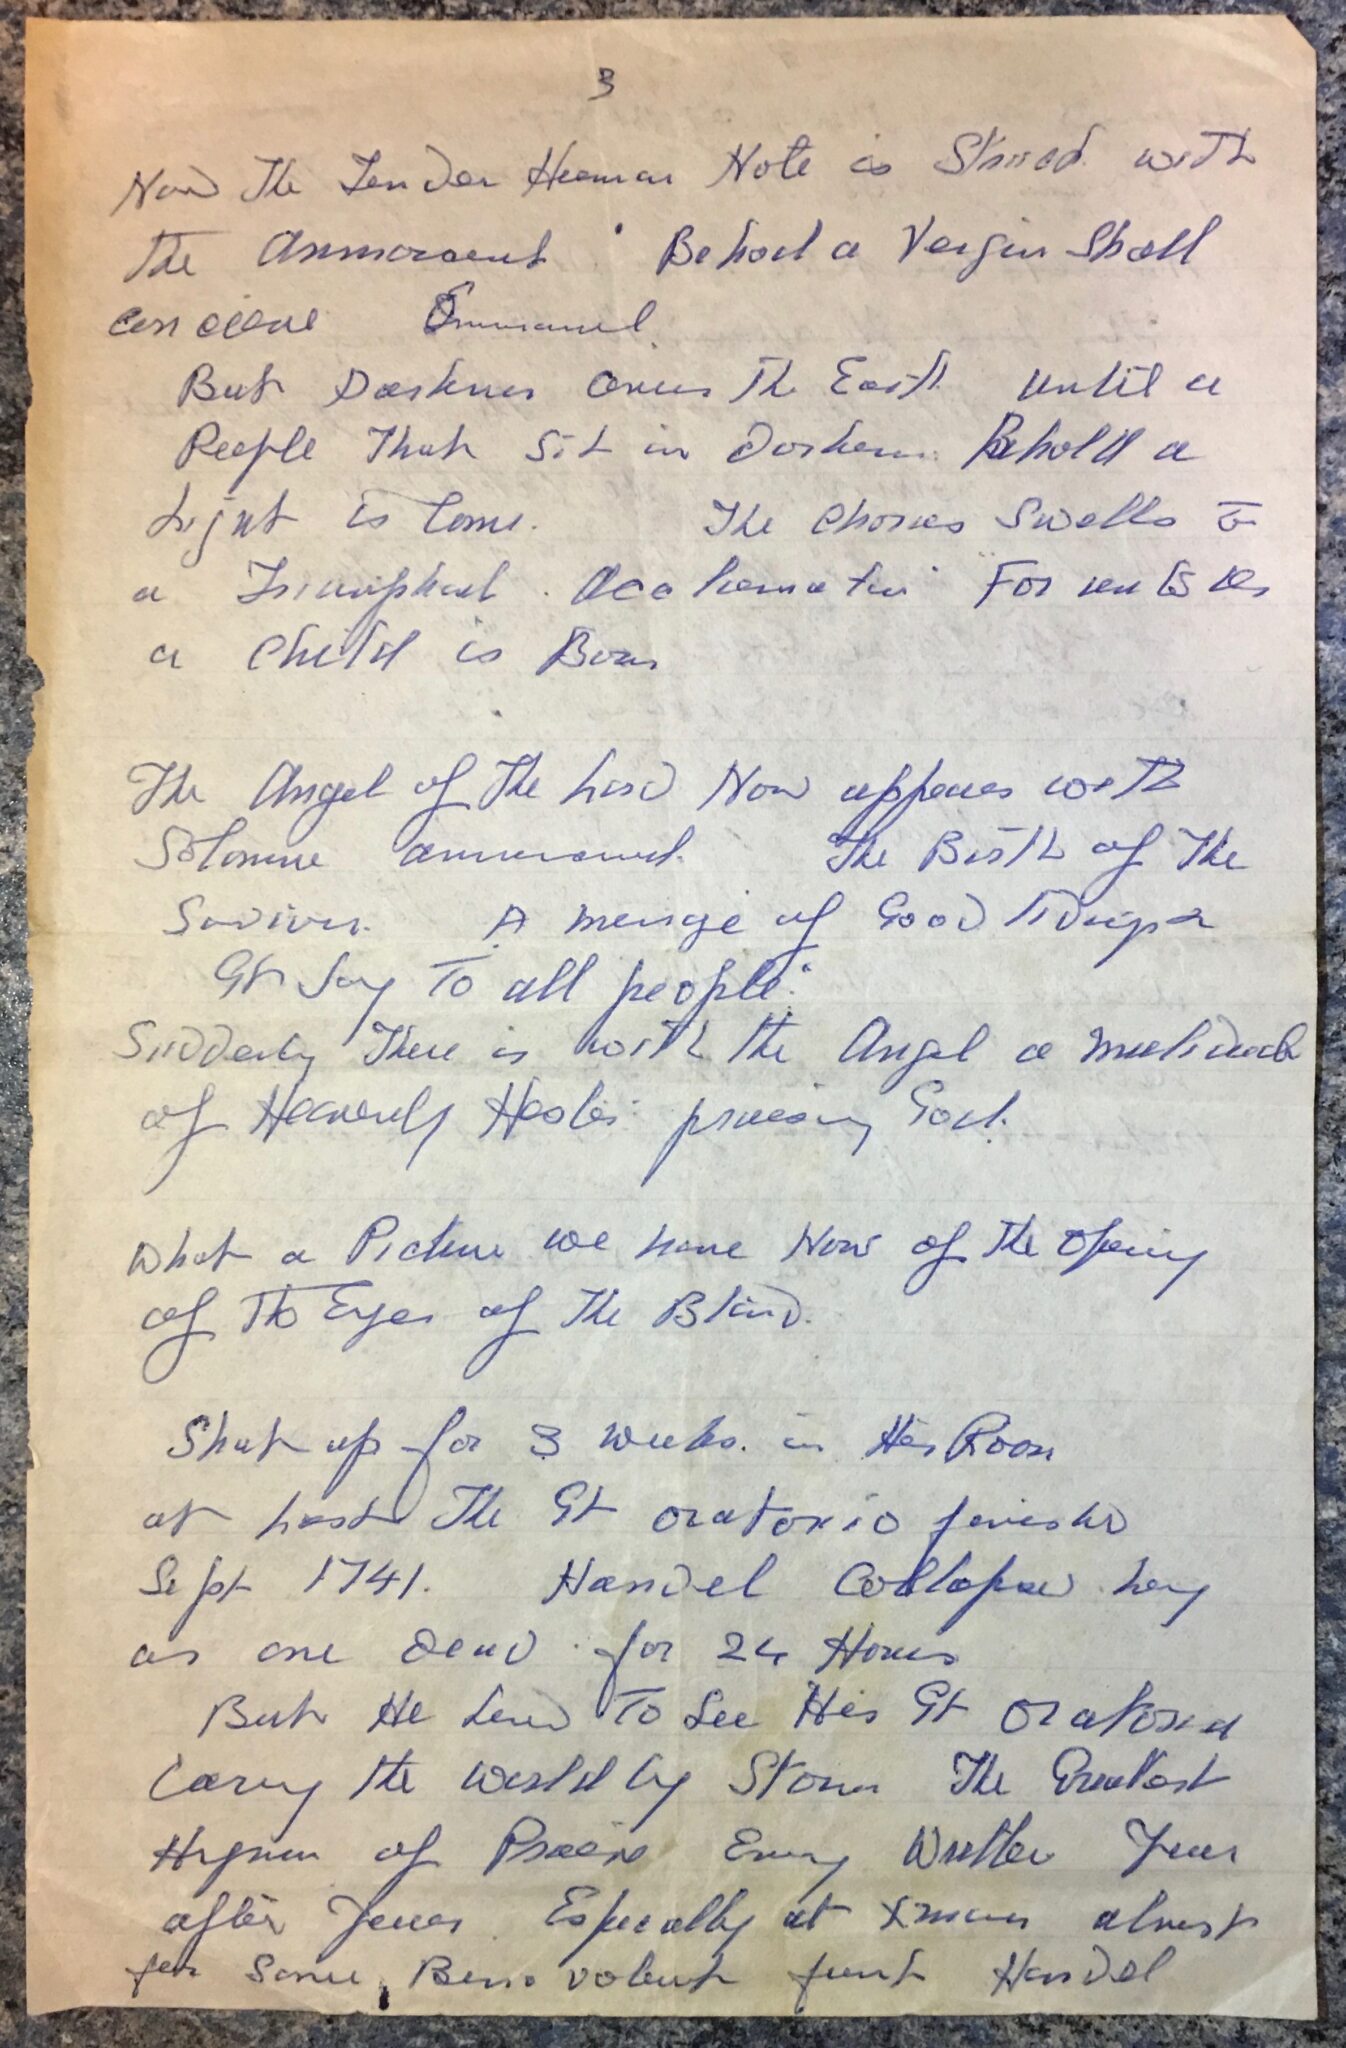 3
Now The Tender Human Note is Stirred with
The Announcement "Behold a Virgin Shall
conceive Emmanuel
But Darkness covers The Earth until a
People That Sit in Darkness Behold a
Light is Come. The Chorus Swells To
a Triumphant "For unto us
a Child is Born
The Angel of The Lord Now appears with
Solomne announcement The Birth of The
Saviour. A message of Good Tidings &
Gt Joy To all people"
Suddenly There is with the Angel a multitude
of Heavenly Hosts praising God.
What a Picture we have Now of The Opening
of The Eyes of The Blind.
Shut up for 3 weeks in His Room
at Last The Gt Oratorio finished
Sept 1741. Handel Collapsed Lay
as one Dead for 24 Hours
But He Lived To See His Gt Oratorio
Carry the World by Storm The Greatest
Hymn of Praise Every Written Year
after Year Especially at Xmas almost
for Some Benevolent fund Handel